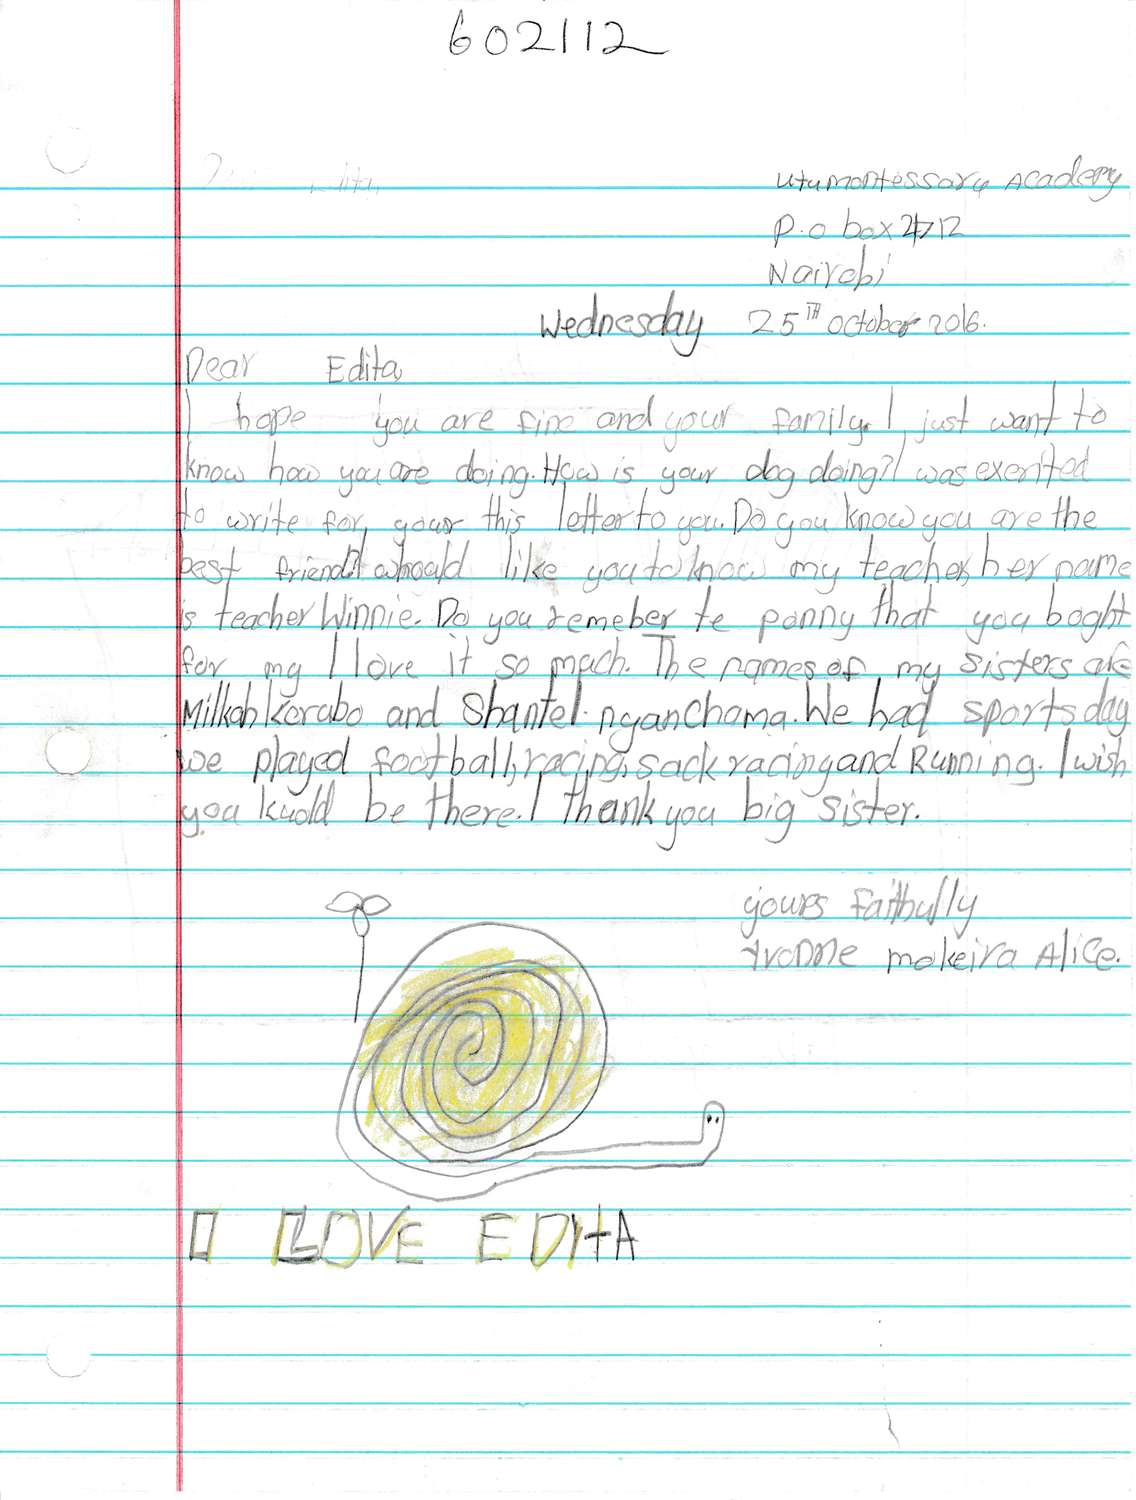 602112
Utumontessary Academy
P.o box 2712
Nairobi
Wednesday 25TH October 2016.
Dear Edita,
I hope you are fine and your family. I just want to
know how you are doing. How is your dog doing? I was exerited
to write for, your this letter to you. Do you know you are the
best friend? I whould like you to know my teacher, her name
is teacher Winnie. Do you remeber te ponny that you boght
for my I love it so mach. The names of my sisters are
Milkah Kerabo and Shantel. nyanchama. We had sports day
we played football, racing, sack racing and Running. I wish
you kuold be there. I thank you big sister.
yours faithully
Yvonne makeira Alice.
I LOVE EDITA